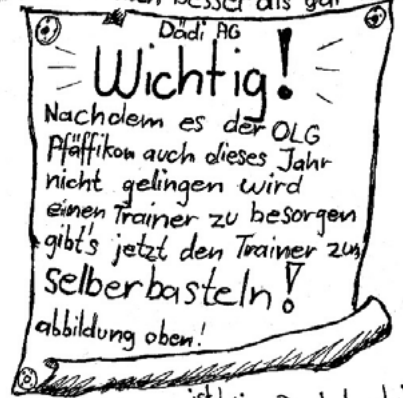 besser als gar
Dädi AG
Wichtig!
Nachdem es der OLG
Pfäffikon auch dieses Jahr
nicht gelingen wird
einen Trainer zu besorgen
gibt's jetzt den Trainer zum
selberbasteln!
abbildung oben!